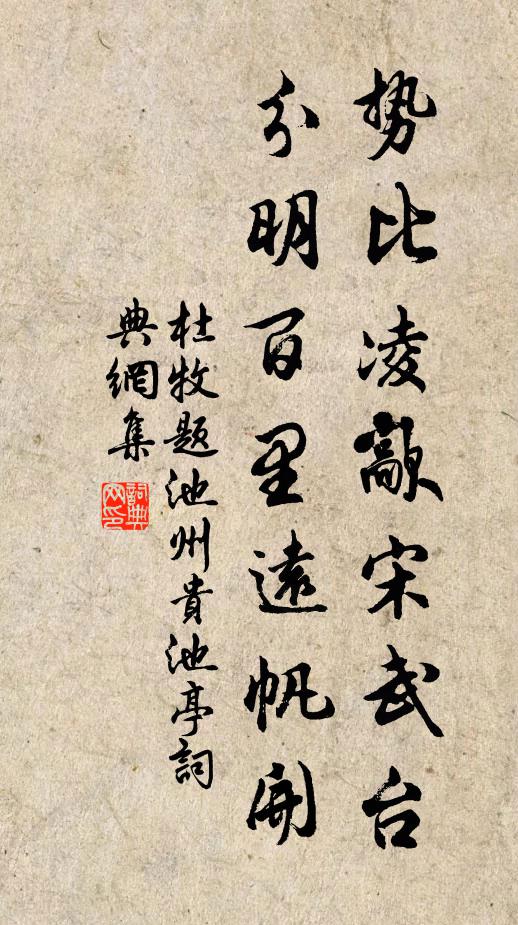 势比凌歊宋武台
分明百里遠帆開
杜牧题池州貴池亭詞
典網集
詞典网印